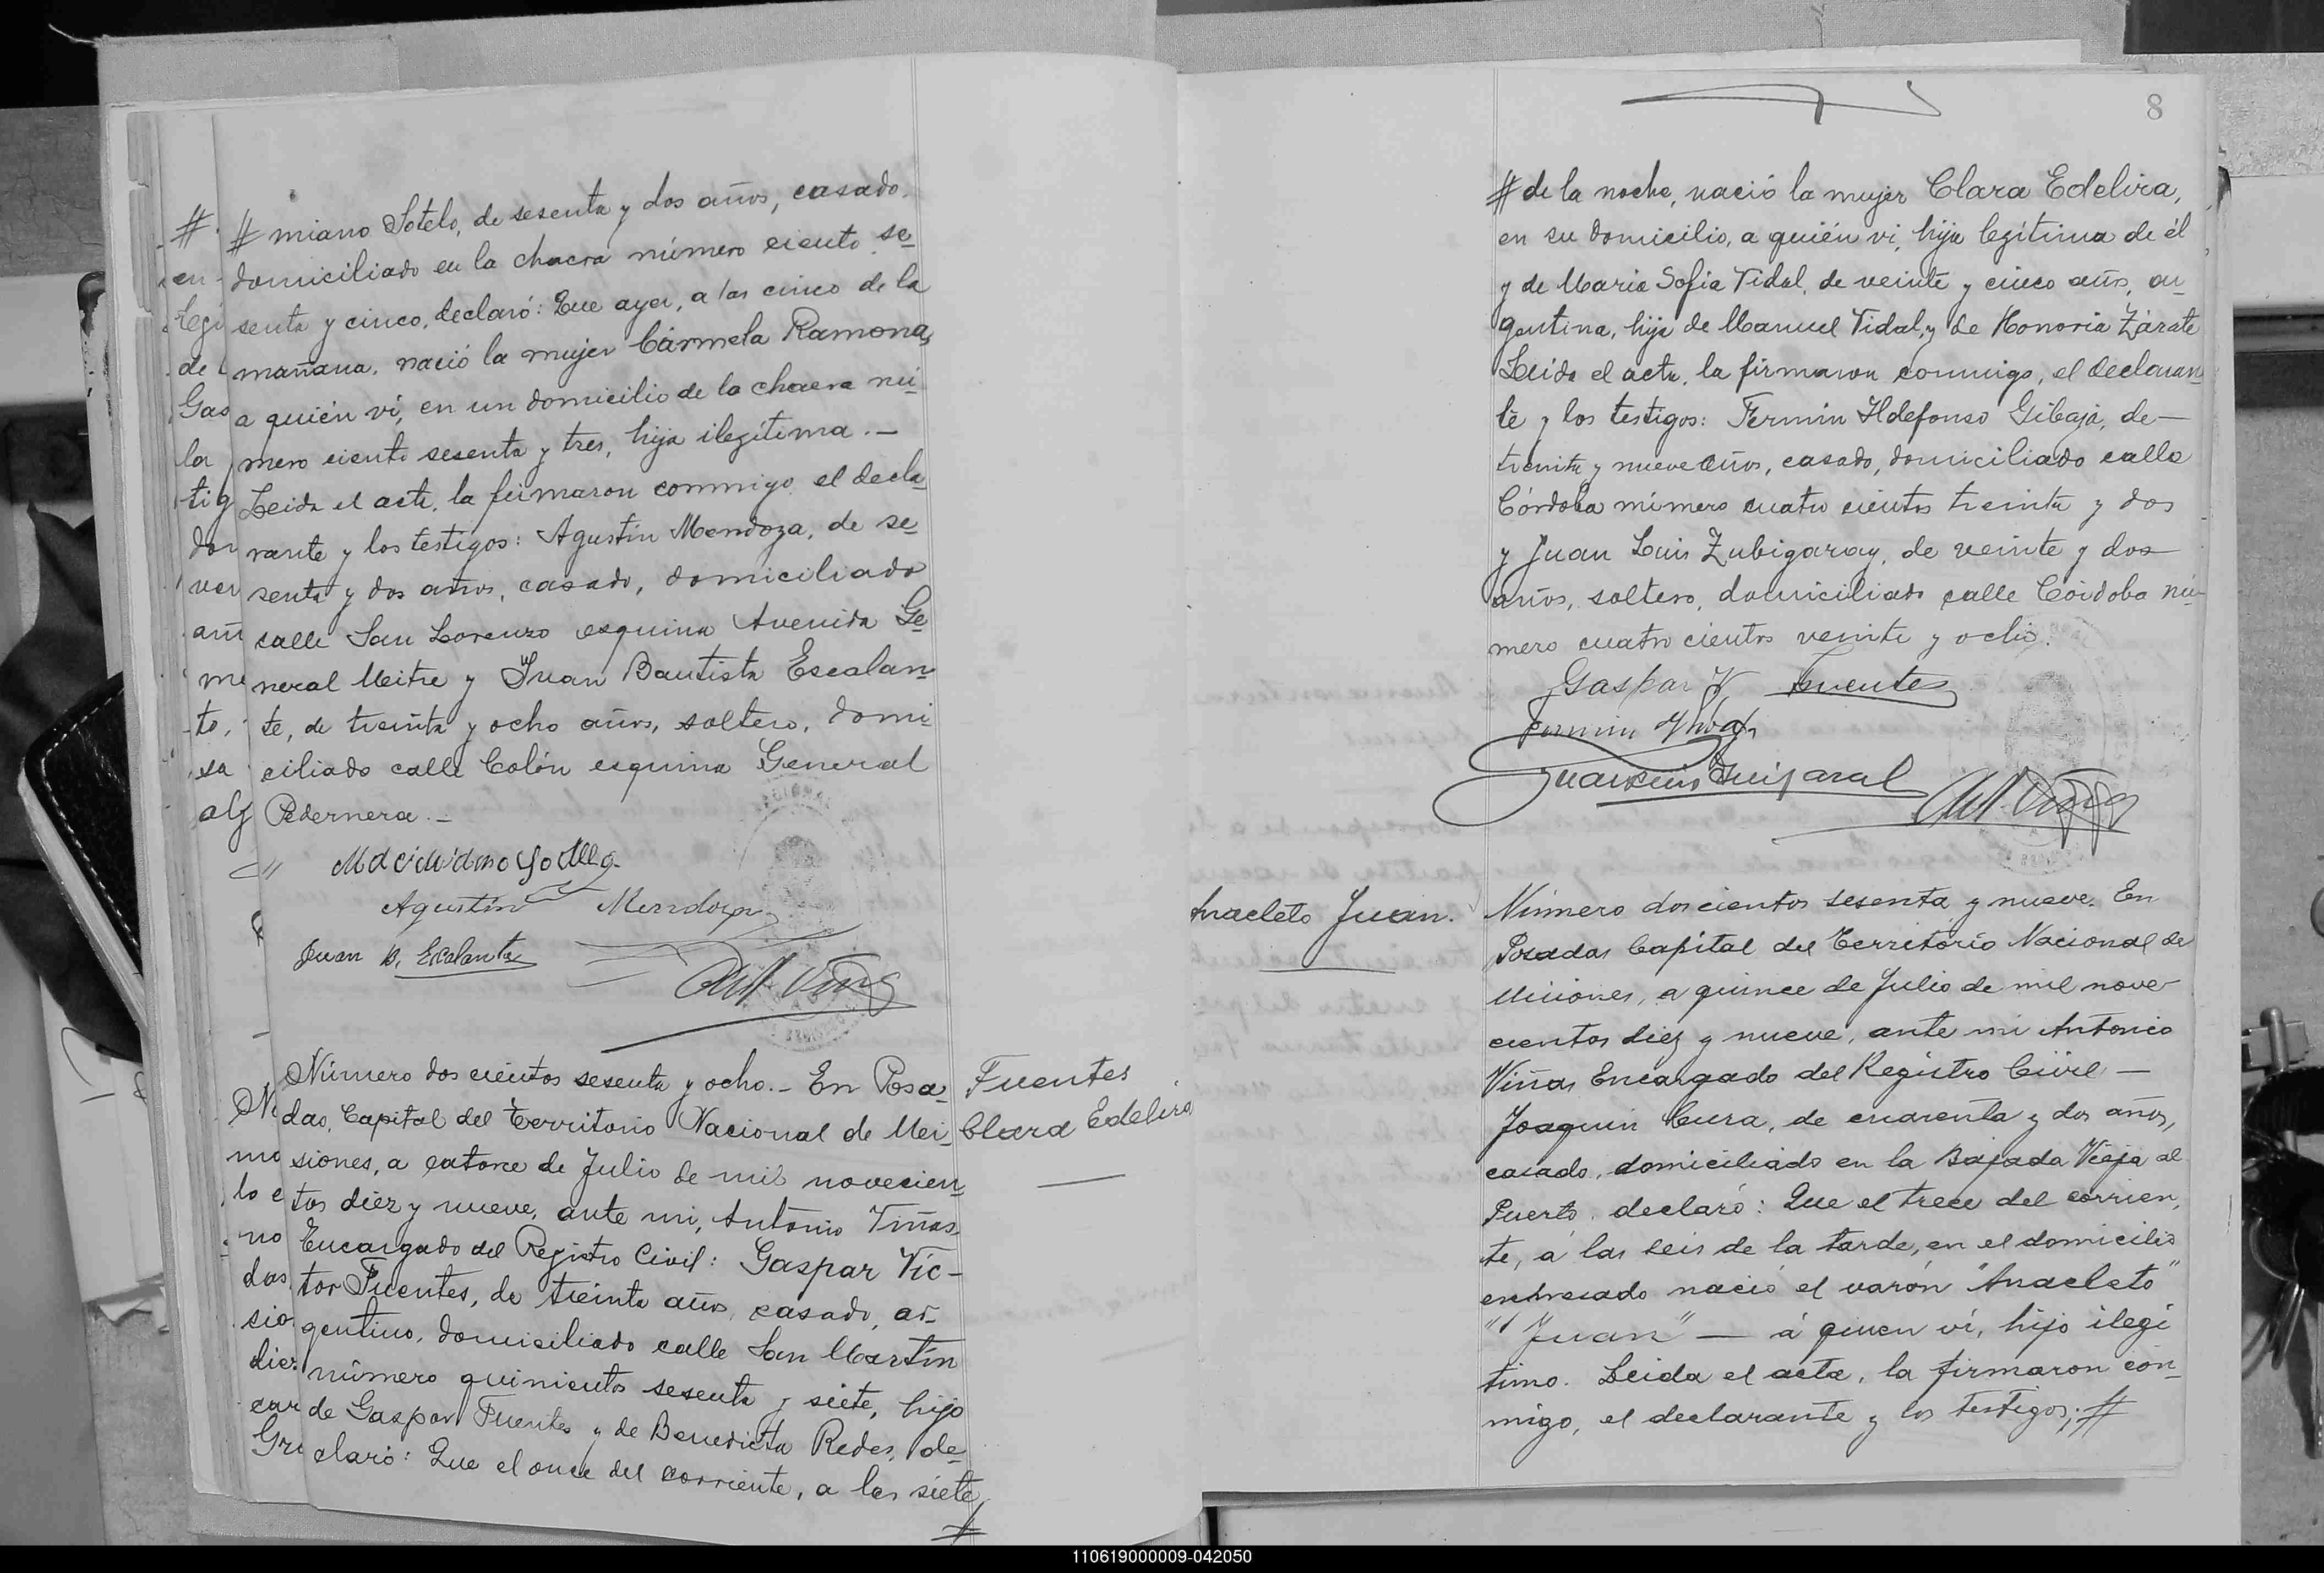 # miano Sotelo, de sesenta y dos años, casado,
domiciliado en la chacra número ciento se
senta y cinco, declaró: Que ayer, a las cinco de la
mañana, nació la mujer Cármela Ramona,
a quién vi, en un domicilio de la chacra nú
mero ciento sesenta y tres, hija ilegítima.—
Leida el acta, la firmaron conmigo el decla
rante y los testigos: Agustín Mendoza, de se
senta y dos años, casado, domiciliado
calle San Lorenzo esquina Avenida Ge
neral Mitre y Juan Bautista Escalan
te, de treinta y ocho años, soltero, domi
ciliado calle Colón esquina General
Pedernera.—
Agustín Mendoza
Juan B. Escalante
Número dos cientos sesenta y ocho.- En Posa
das, Capital del Territorio Nacional de Mi
siones, a catorce de Julio de mil novecien
tos diez y nueve, ante mi, Antonio Viñas
Encargado del Registro Civil: Gaspar Víc-
tor Fuentes, de treinta años, casado, ar-
gentino, domiciliado calle San Martín
número quinientos sesenta y siete, hijo
de Gaspar Fuentes y de Benedicta Redes, de
claró: Que el once del corriente, a las siete
#
Fuentes
Clara Edelira
8
# de la noche, nació la mujer Clara Edelira,
en su domicilio, a quién vi, hija legítima de él
y de Maria Sofia Vidal, de veinte y cinco años, ar
gentina, hija de Manuel Vidal, y de Honoria Zárate
Leida el acta, la firmaron conmigo, el declaran
te y los testigos: Fermin Ildefonso Gibaja, de—
treinta y nueve años, casado, domiciliado calle
Córdoba número cuatro cientos treinta y dos
y Juan Luis Zubigaray, de veinte y dos
años, soltero, domiciliado calle Córdoba nú-
mero cuatro cientos veinte y ocho.
Gaspar V Fuentes
Anacleto Juan.
Número doscientos sesenta y nueve. En
Posadas Capital del Territorio Nacional de
Misiones, a quince de Julio de mil nove-
cientos diez y nueve, ante mi Antonio
Viñas Encargado del Registro Civil—
Joaquin Cura, de cuarenta y dos años,
casado, domiciliado en la Bajada Vieja al
Puerto, declaró: Que el trece del corrien
te, á las seis de la tarde, en el domicilio
expresado nació el varón "Anacleto"
"Juan" — á quien ví, hijo ilegí
timo. Leida el acta, la firmaron con
migo, el declarante y los testigos; #
110619000009-042050